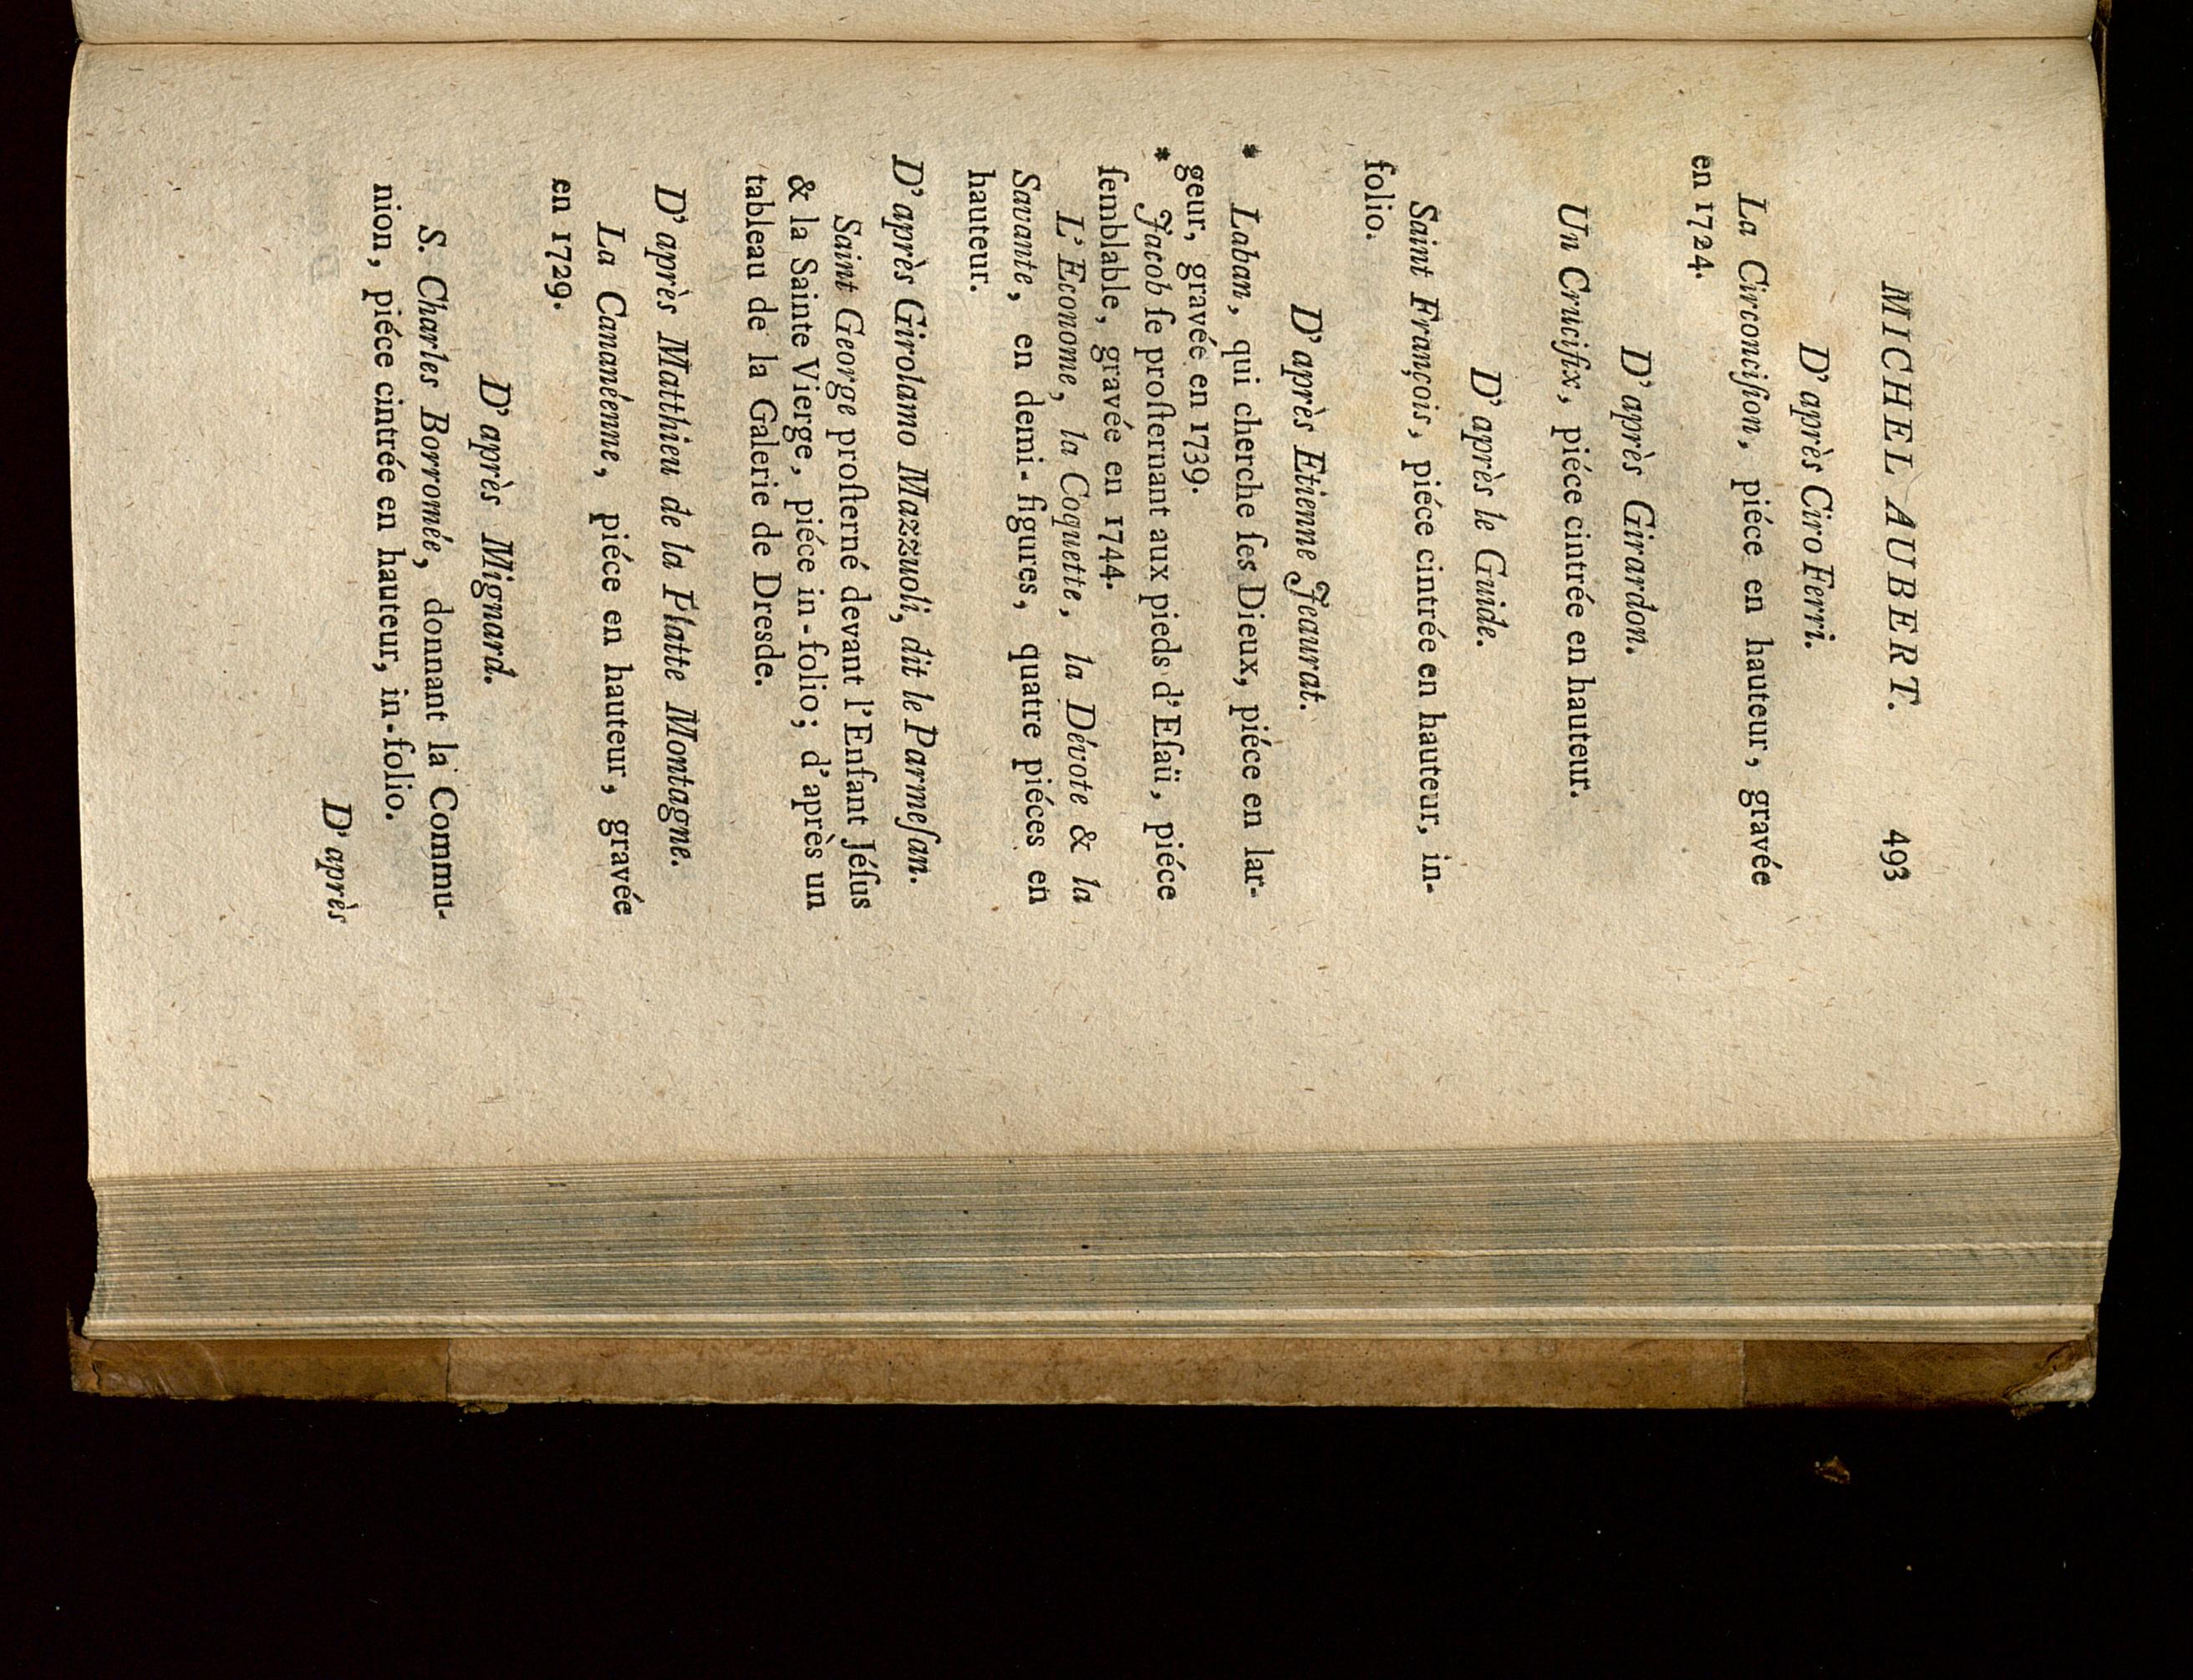 MICHEL AUBERT. 493
D'après Ciro Ferri.
La Circonciſion, piéce en hauteur, gravée
en 1724.
D'après Girardon.
Un Crucifix, piéce cintrée en hauteur.
D'après le Guide.
Saint François, piéce cintrée en hauteur, in-
folio.
D'après Etienne Jeaurat.
* Laban, qui cherche ſes Dieux, piéce en lar-
geur, gravée en 1739.
* Jacob ſe proſternant aux pieds d'Eſaü, piéce
ſemblable, gravée en 1744.
L'Econome, la Coquette, la Dévote & la
Savante, en demi-figures, quatre piéces en
hauteur.
D'après Girolamo Mazzuoli, dit le Parmeſan.
Saint George proſterné devant l'Enfant Jéſus
& la Sainte Vierge, piéce in-folio; d'après un
tableau de la Galerie de Dresde.
D'après Matthieu de la Platte Montagne.
La Cananéenne, piéce en hauteur, gravée
en 1729.
D'après Mignard.
S. Charles Borromée, donnant la Commu-
nion, piéce cintrée en hauteur, in-folio.
D'après